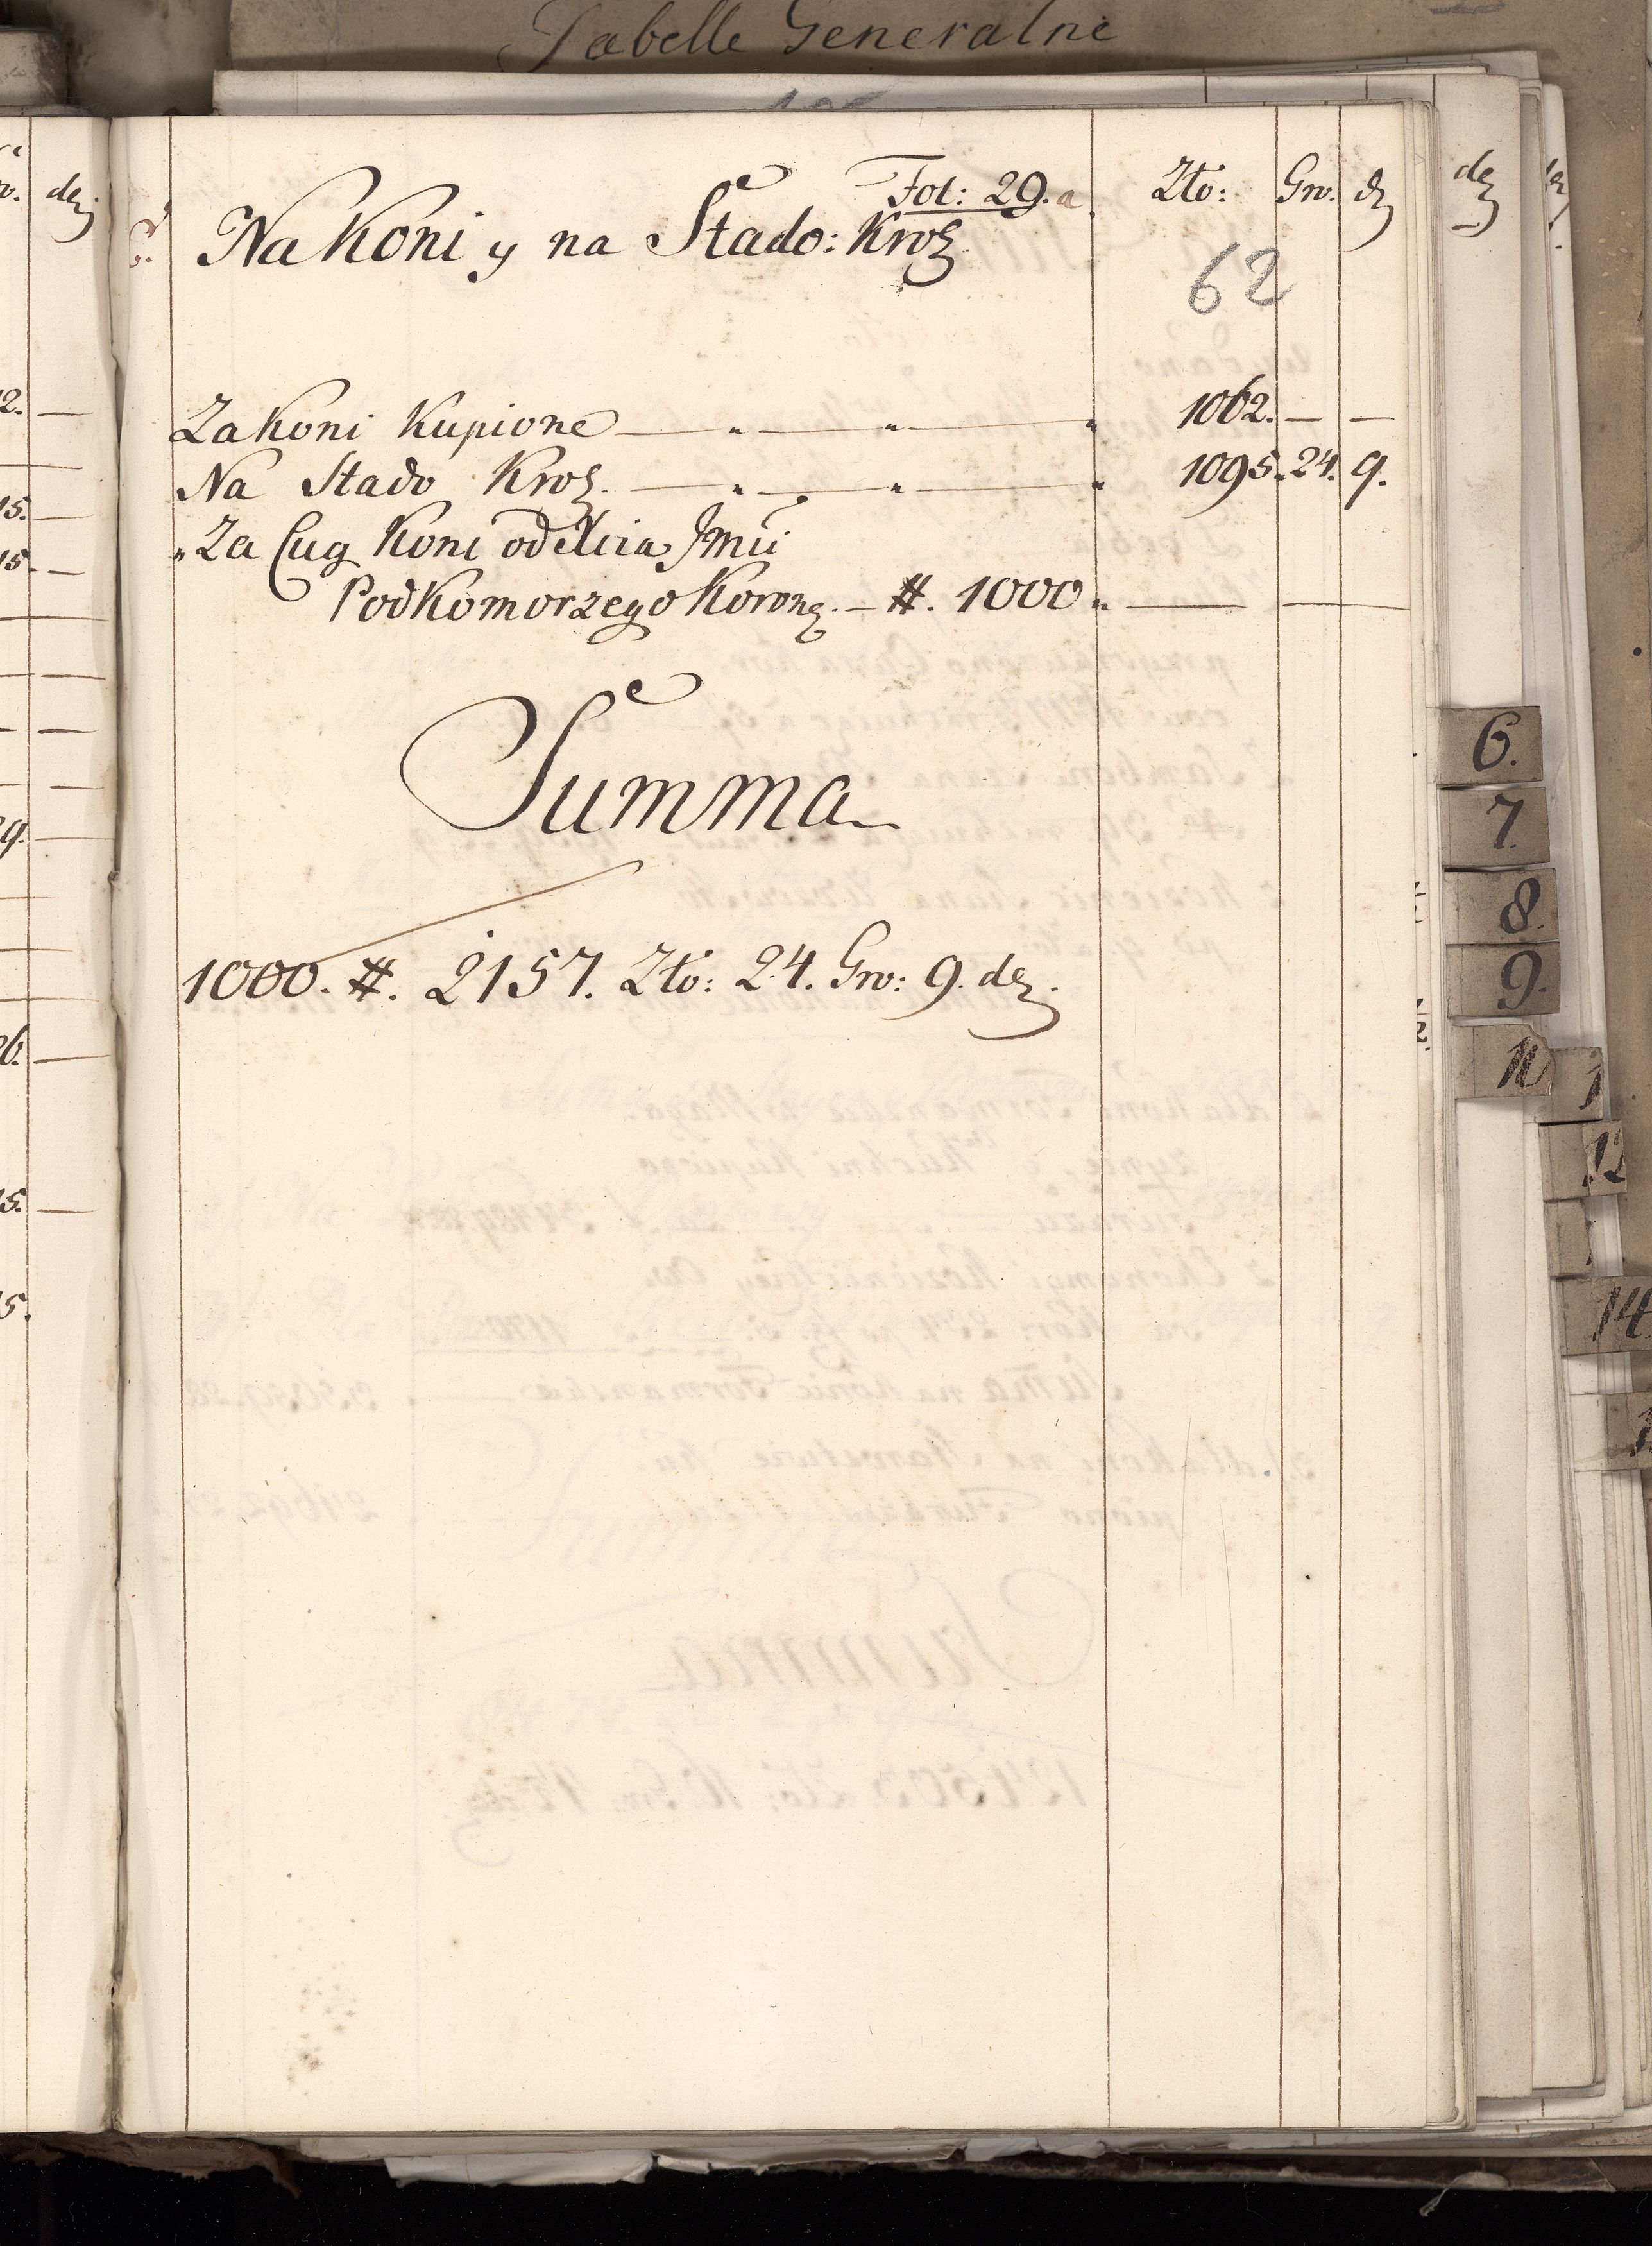 Tabelle Generalne
Fol: 29. a
Zło: Gro. dz
Na Koni y na Stado: Kroz
62
Za Koni Kupione — „ — „ — „ 1062. — —
Na Stado Kroz. — „ — „ — „ 1095. 24. 9.
„ Za Cug Koni od Xcia Jmci
Podkomorzego Koronz. — #. 1000 „ — —
Summa
1000. #. 2157. Zło: 24. Gro: 9. dz.
dz
6.
7.
8.
9.
12
14